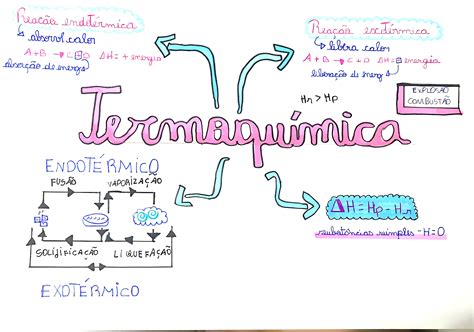 Reação endotérmica
↳ absorve calor
A + B → C + D ΔH = + energia
absorção de energia
Reação exotérmica
↳ libera calor
A + B → C + D ΔH = - energia
liberação de energia
Hr > Hp
EXPLOSÃO
COMBUSTÃO
Termoquímica
ENDOTÉRMICO
FUSÃO
VAPORIZAÇÃO
SOLIDIFICAÇÃO
LIQUEFAÇÃO
EXOTÉRMICO
ΔH = Hp - Hr
substâncias simples - H=0